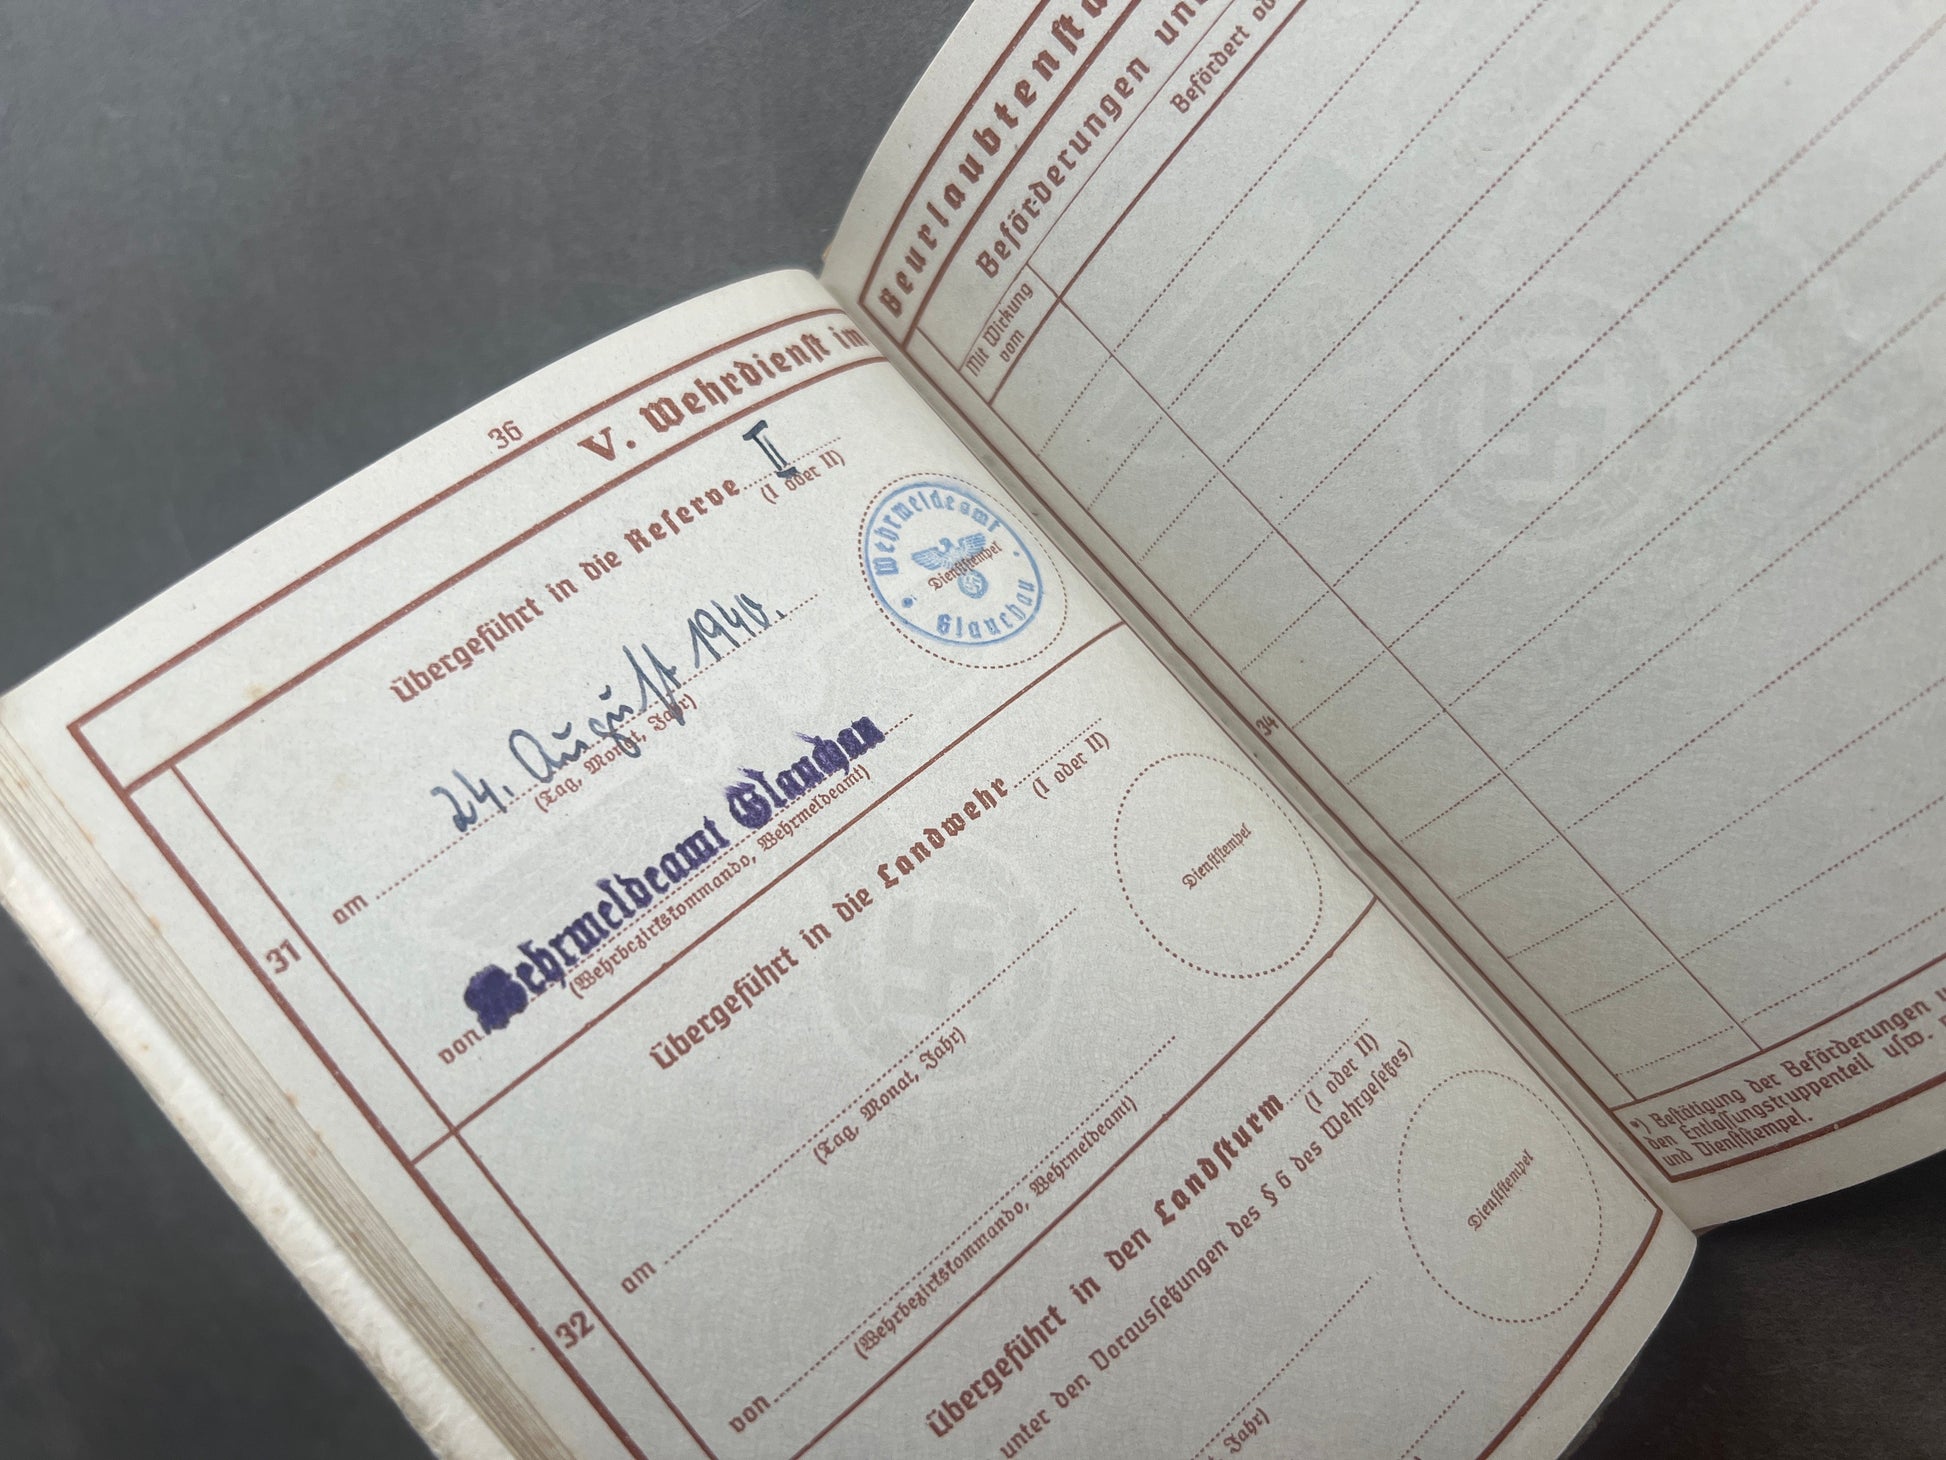 36
V. Wehrdienst im
Übergeführt in die Reserve II
(I oder II)
Wehrmeldeamt Glauchau
Dienststempel
am 24. August 1940.
(Tag, Monat, Jahr)
von Wehrmeldeamt Glauchau
(Wehrbezirkskommando, Wehrmeldeamt)
31
Übergeführt in die Landwehr
(I oder II)
Dienststempel
am
(Tag, Monat, Jahr)
von
(Wehrbezirkskommando, Wehrmeldeamt)
32
Übergeführt in den Landsturm
(I oder II)
unter den Voraussetzungen des § 6 des Wehrgesetzes)
Dienststempel
Jahr)
Beurlaubtenst
Beförderungen un
Mit Wirkung
vom
Befördert
34
*) Bestätigung der Beförderungen
den Entlassungstruppenteil usw.
und Dienststempel.